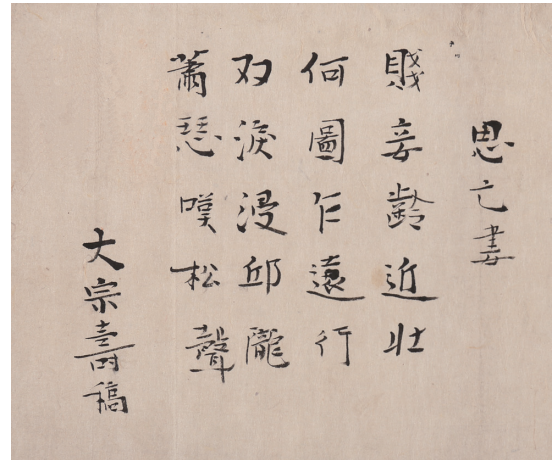 思亡妻
賤妾齡近壯
何圖乍遠行
双淚浸邱隴
蕭瑟嘆松聲
大宗壽稿